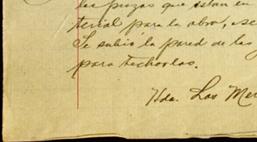 las piezas que estan en
terial para la obra, se
Se subio la pared de las
para techarlas.
Hda. Las Mer